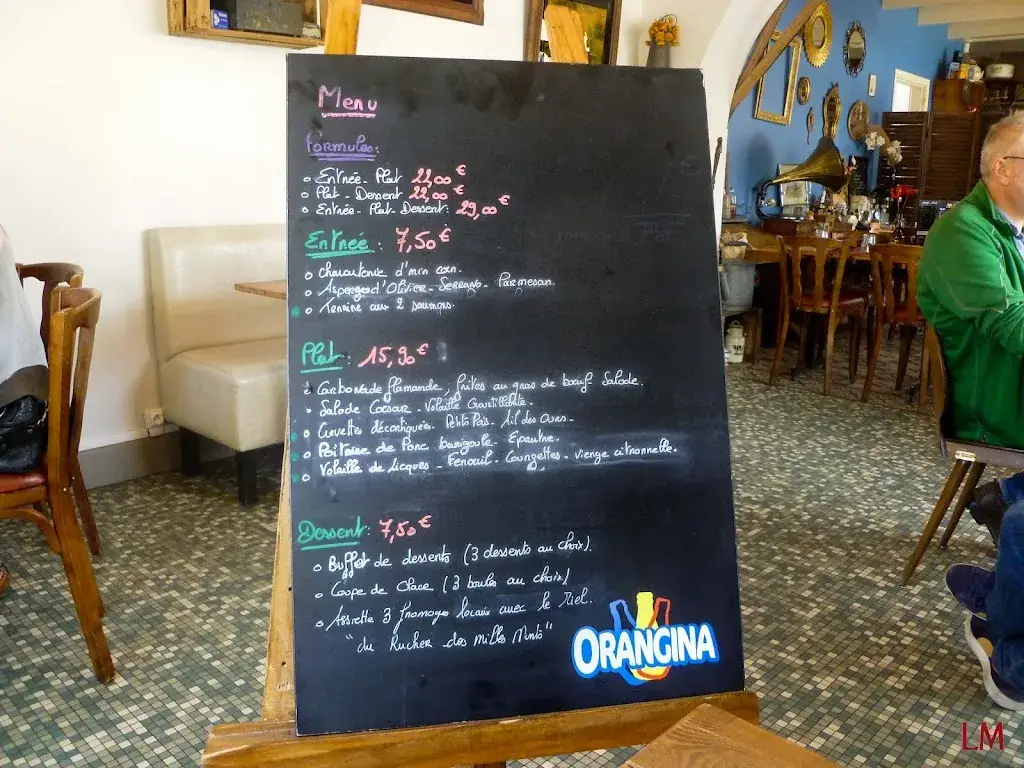 Menu
Formules:
Entrée - Plat 22,00 €
Plat - Dessert 22,00 €
Entrée - Plat - Dessert: 29,00 €
Entrée: 7,50 €
Charcuterie d'mon coin.
Asperges d'Olivier - Serrano - Parmesan.
Terrine aux 2 saumons.
Plat: 15,90 €
Carbonade flamande, frites au gras de boeuf Salade.
Salade Caesar - Volaille Croustillante.
Crevettes décortiquées. Petits Pois - Ail des Ours -
Poitrine de Porc barigoule - Epeautre.
Volaille de Licques - Fenouil - Courgettes - vierge citronnelle.
Dessert: 7,50 €
Buffet de desserts (3 desserts au choix).
Coupe de Glace (3 boules au choix)
Assiette 3 fromages locaux avec le Miel.
"du Rucher des milles Monts"
ORANGINA
LM